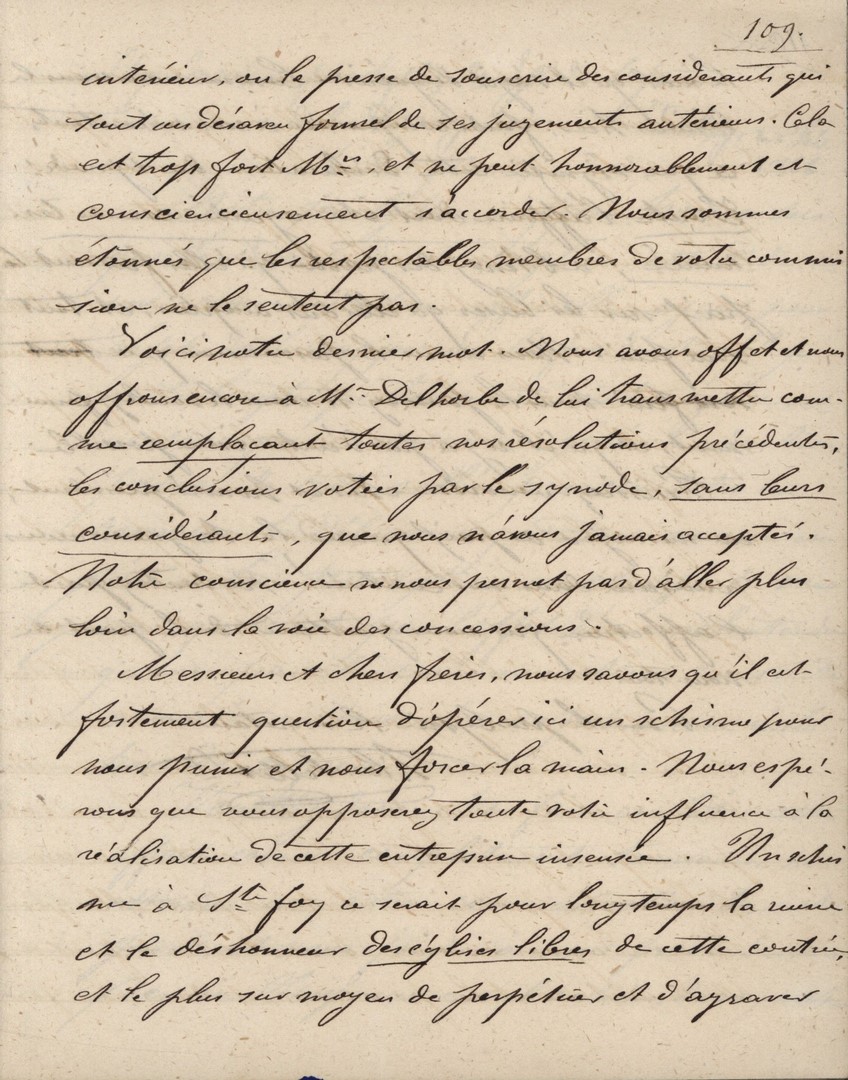 109.
intérieur, ou le presse de souscrire des considérants qui
sont un désaveu formel de ses jugements antérieurs. Cela
est trop fort Mrs, et ne peut honnorablement et
consciencieusement s'accorder. Nous sommes
étonnés que les respectables membres de votre commis
sion ne le sentent pas.
Voici notre dernier mot. Nous avons offert et nous
offrons encore à Mr Delhorbe de lui transmettre com-
me remplaçant toutes nos résolutions précédentes,
les conclusions votées par le synode, sans leurs
considérants, que nous n'avons jamais acceptés.
Notre conscience ne nous permet pas d'aller plus
loin dans la voie des concessions.
Messieurs et chers frères, nous savons qu'il est
fortement question d'opérer ici un schisme pour
nous punir et nous forcer la main. Nous espé-
rons que vous opposerez toute votre influence à la
réalisation de cette entreprise insensée. Un schis
me à Ste foy ce serait pour longtemps la ruine
et le déshonneur des églises libres de cette contrée,
et le plus sur moyen de perpétuer et d'aggraver